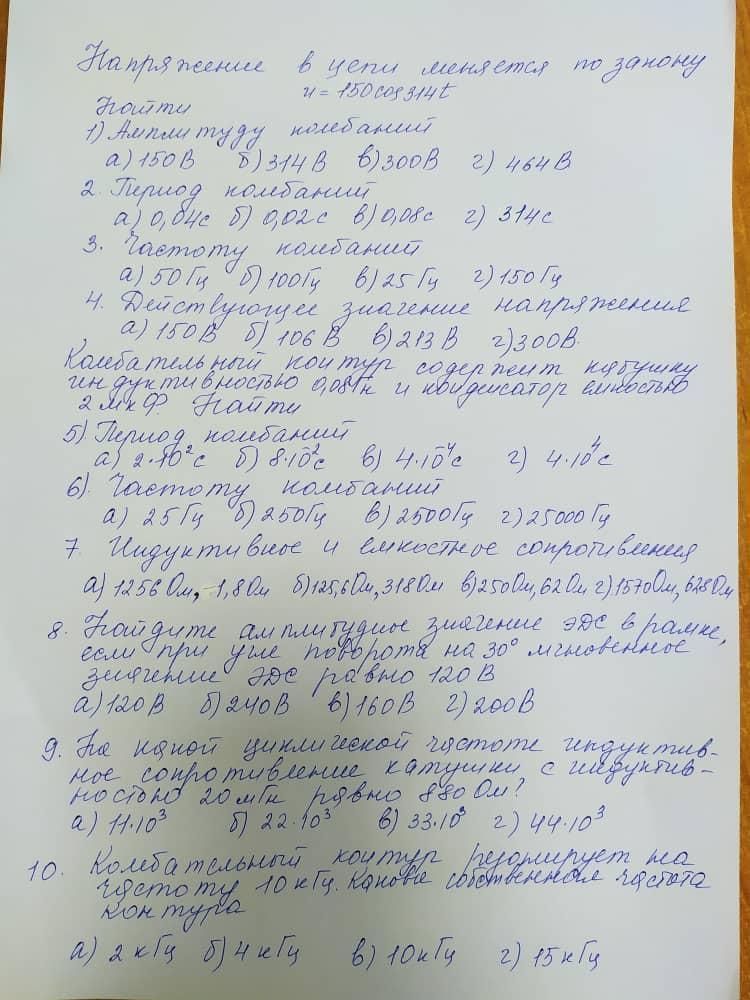 Напряжение в цепи меняется по закону
u = 150cos314t
Найти
1) Амплитуду колебаний
а) 150В б) 314В в) 300В г) 464В
2. Период колебаний
а) 0,04с б) 0,02с в) 0,08с г) 314с
3. Частоту колебаний
а) 50Гц б) 100Гц в) 25Гц г) 150Гц
4. Действующее значение напряжения
а) 150В б) 106В в) 213В г) 300В.
Колебательный контур содержит катушку
индуктивностью 0,08Гн и кондисатор емкостью
2 мкФ. Найти
5). Период колебаний
а) 2·10⁻²с б) 8·10⁻²с в) 4·10⁻⁴с г) 4·10⁴с
6). Частоту колебаний
а) 25Гц б) 250Гц в) 2500Гц г) 25000Гц
7. Индуктивное и емкостное сопротивления
а) 1256Ом, 1,8Ом б) 125,6Ом, 318Ом в) 250Ом, 62Ом г) 1570Ом, 628Ом
8. Найдите амплитудное значение ЭДС в рамке,
если при угле поворота на 30° мгновенное
значение ЭДС равно 120В
а) 120В б) 240В в) 160В г) 200В
9. На какой циклической частоте индуктив-
ное сопротивление катушки с индуктив-
ностью 20мГн равно 880Ом?
а) 11·10³ б) 22·10³ в) 33·10³ г) 44·10³
10. Колебательный контур резонирует на
частоту 10кГц. Какова собственная частота
контура
а) 2кГц б) 4кГц в) 10кГц г) 15кГц